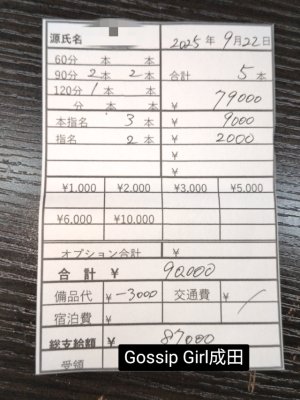 源氏名
2025年 9月22日
60分 本 本
90分 2本 2本 合計 5本
120分 1本 本 ¥ 79000
分 本 本 ¥
本指名 3本 ¥ 9000
指名 2本 ¥ 2000
¥
¥
¥1.000 ¥2.000 ¥3,000 ¥5.000
¥6.000 ¥10.000
オプション合計 ¥
合計 ¥ 90.000
備品代 ¥-3000 交通費 ¥ /
宿泊費 ¥
総支給額 ¥ 87000
受領
Gossip Girl成田